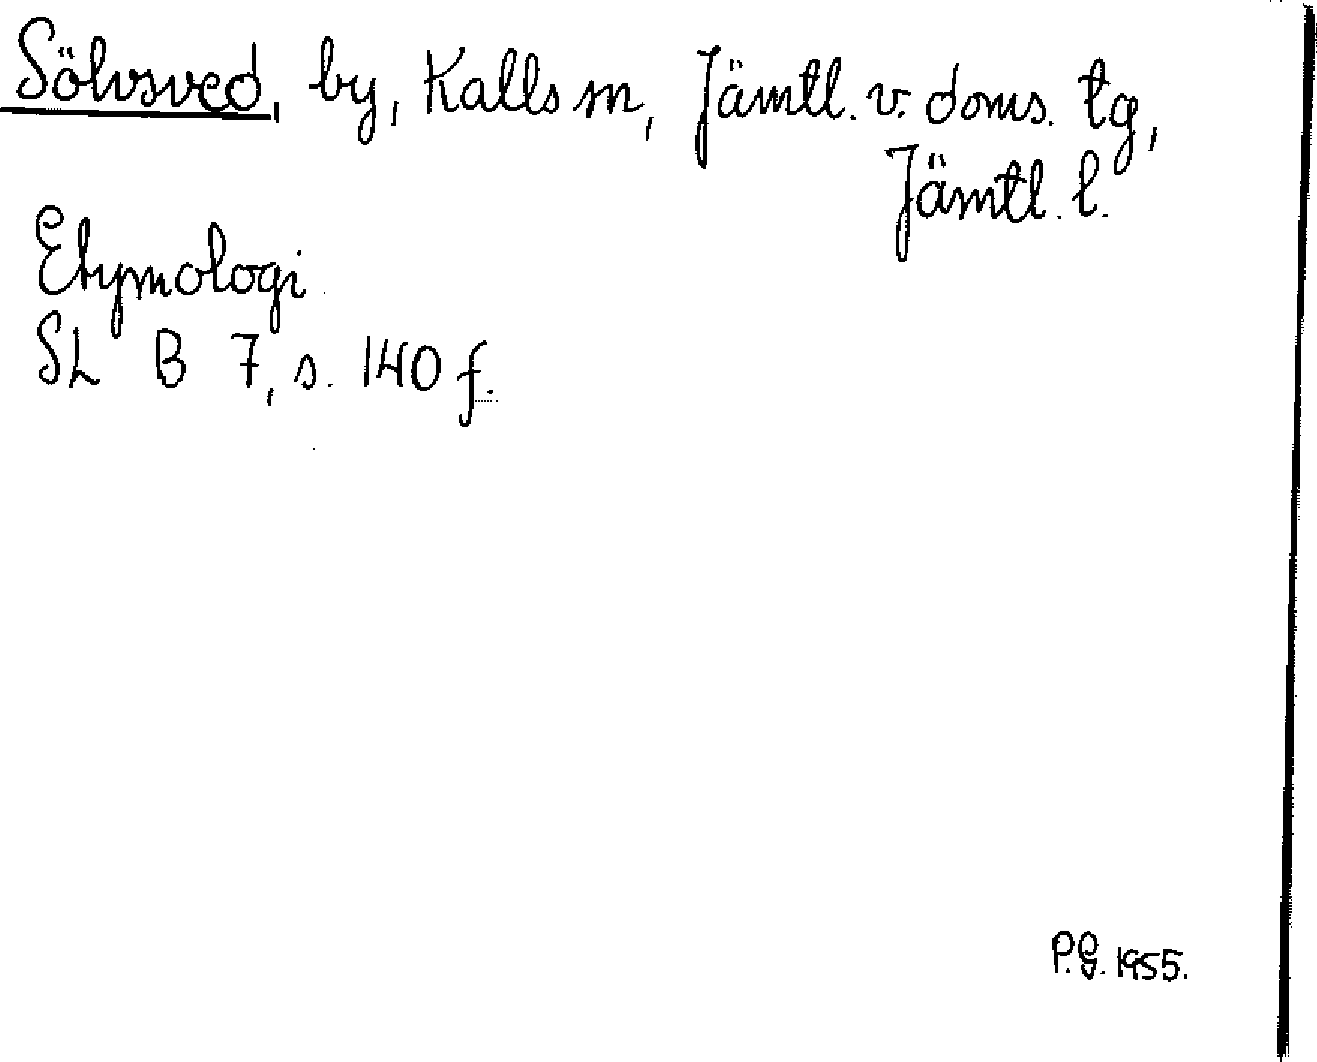 Sölvsved, by, Kalls sn, Jämtl. v. doms. tg,
Jämtl. l.
Etymologi
SL B 7, s. 140 f.
P.G. 1955.